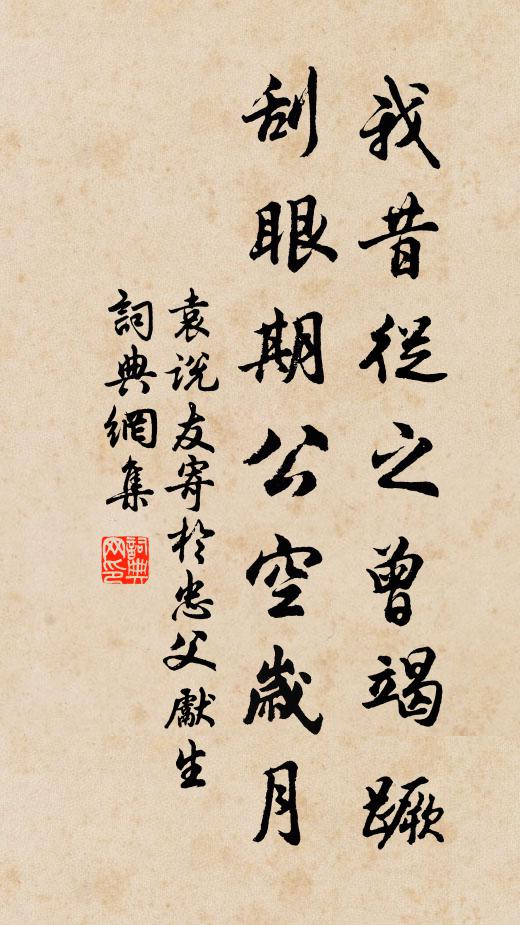 我昔從之曾竭蹶
刮眼期公空歲月
袁説友寄於忠父獻生
詞典網集
詞典网印